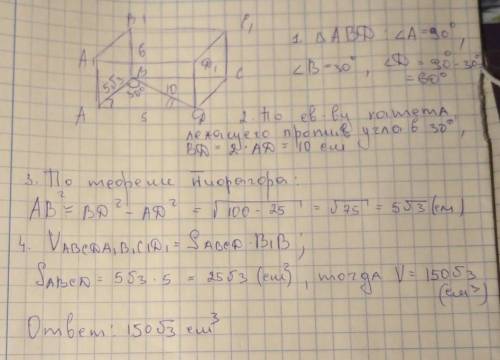 B1
C1
A
6
D1
5√3
B
30°
C
10
A
5
D
1. △ABD: ∠A = 90°,
∠B = 30°, ∠D = 90°-30° =
= 60°
2. По св-ву катета
лежащего против угла в 30°,
BD = 2·AD = 10 см
3. По теореме Пифагора:
AB² = BD² - AD² = √100 - 25 = √75 = 5√3 (см)
4. VABCDA1B1C1D1 = SABCD · B1B;
SABCD = 5√3 · 5 = 25√3 (см²), тогда V = 150√3
(см³)
Ответ: 150√3 см³